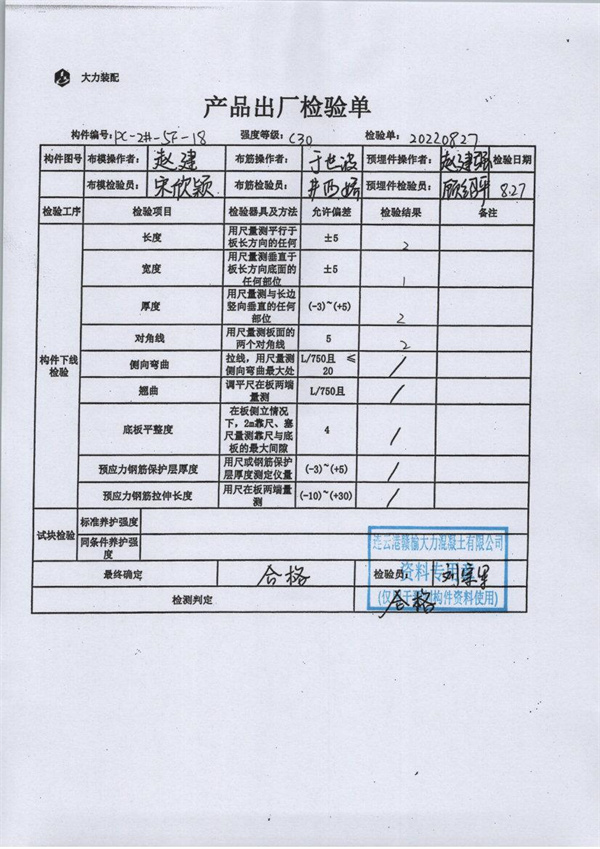 大力装配
产品出厂检验单
构件编号: PC-2#-5F-18 强度等级: C30 检验单: 20220827
构件图号 布模操作者: 赵建 布筋操作者: 于世波 预埋件操作者: 赵建强 检验日期
布模检验员: 宋欣颖 布筋检验员: 预埋件检验员: 8.27
检验工序 检验项目 检验器具及方法 允许偏差 检验结果 备注
构件下线检验
长度 用尺量测平行于板长方向的任何 ±5 2
宽度 用尺量测垂直于板长方向底面的任何部位 ±5 1
厚度 用尺量测与长边竖向垂直的任何部位 (-3)~(+5) 2
对角线 用尺量测板面的两个对角线 5 2
侧向弯曲 拉线，用尺量测侧向弯曲最大处 L/750且 ≤20 /
翘曲 调平尺在板两端量测 L/750且 /
底板平整度 在板侧立情况下，2m靠尺、塞尺量测靠尺与底板的最大间隙 4 /
预应力钢筋保护层厚度 用尺或钢筋保护层厚度测定仪量 (-3)~(+5) /
预应力钢筋拉伸长度 用尺在板两端量测 (-10)~(+30) /
试块检验 标准养护强度
同条件养护强度
最终确定 合格 检验员:
检测判定 合格
连云港赣榆大力混凝土有限公司
资料专用
(仅用于 构件资料使用)